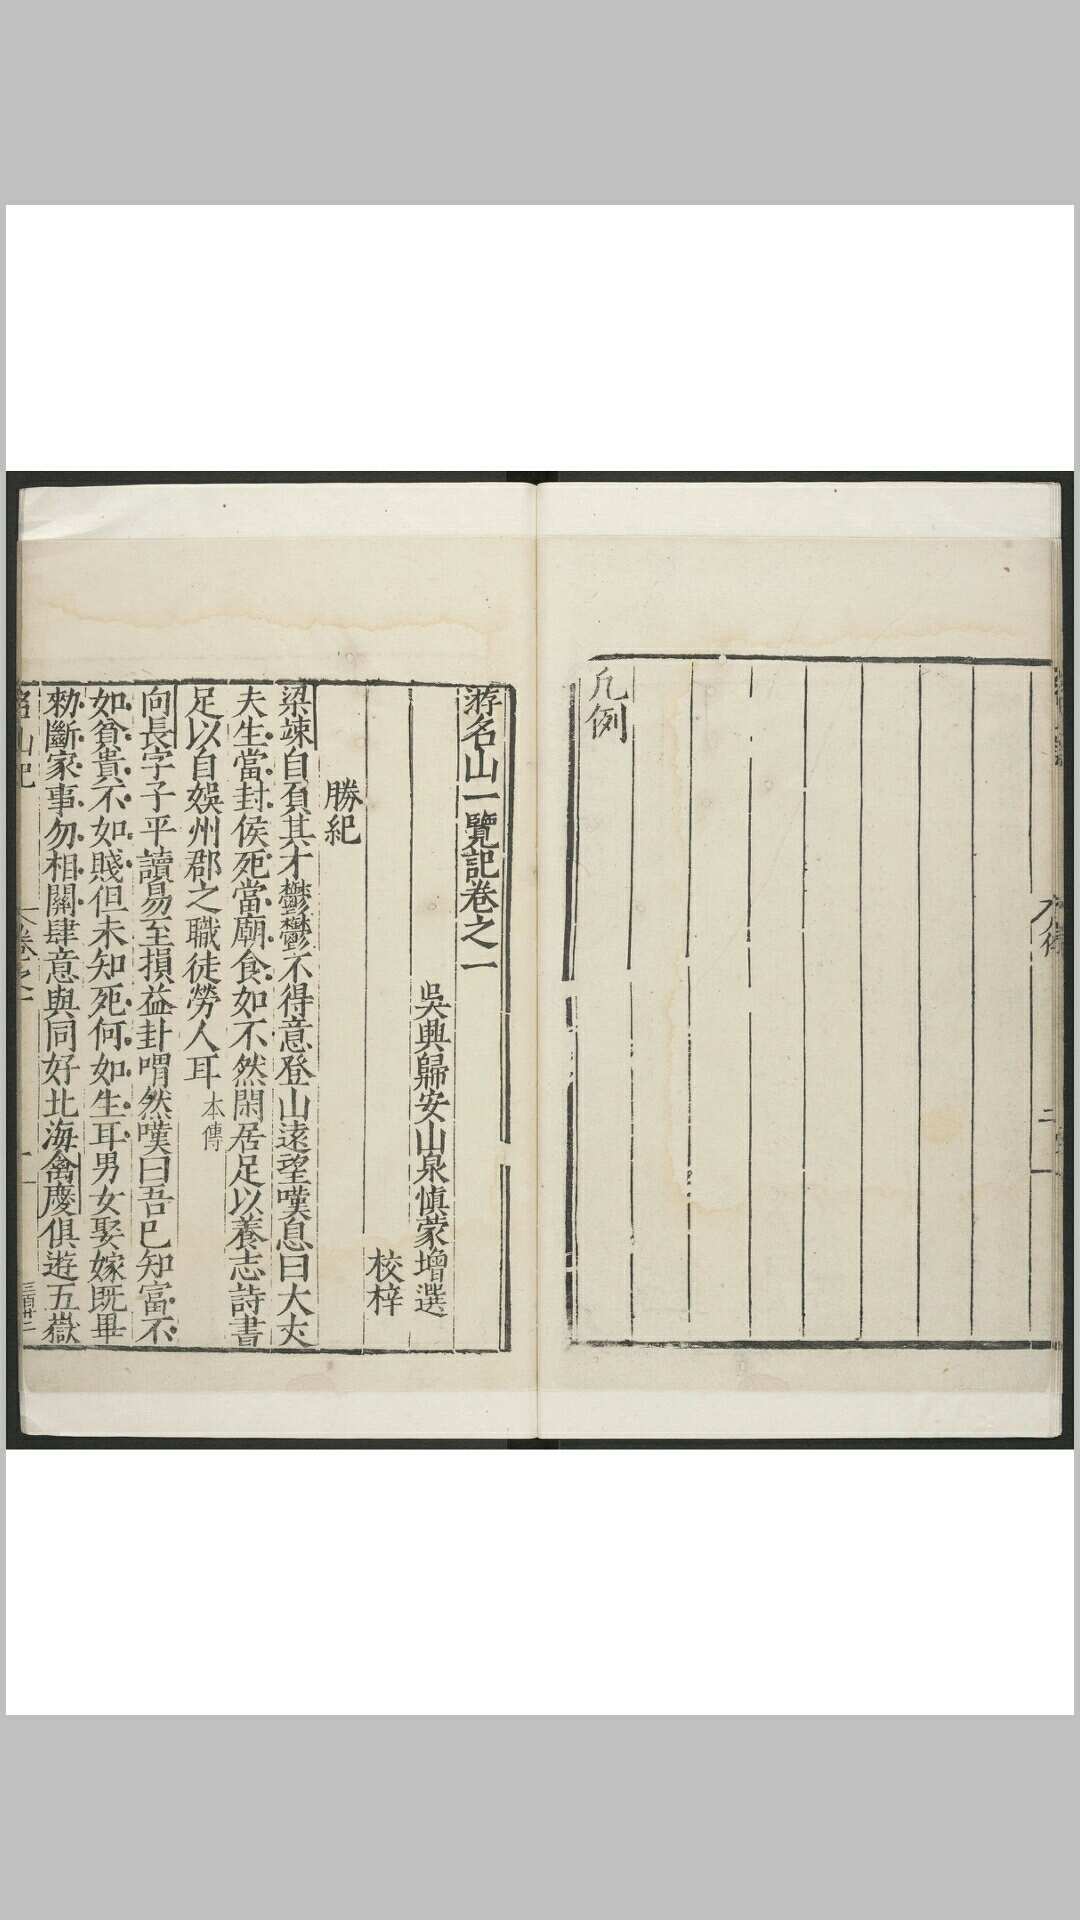 凡例
凡例
二
游名山一覽記卷之一
吳興歸安山泉慎蒙增選
校梓
勝紀
梁竦自負其才鬱鬱不得意登山遠望嘆息曰大丈
夫生當封侯死當廟食如不然閑居足以養志詩書
足以自娛州郡之職徒勞人耳本傳
向長字子平讀易至損益卦喟然嘆曰吾已知富不
如貧貴不如賤但未知死何如生耳男女娶嫁既畢
勑斷家事勿相關肆意與同好北海禽慶俱遊五嶽
名山記
卷之一
一
三百廿二